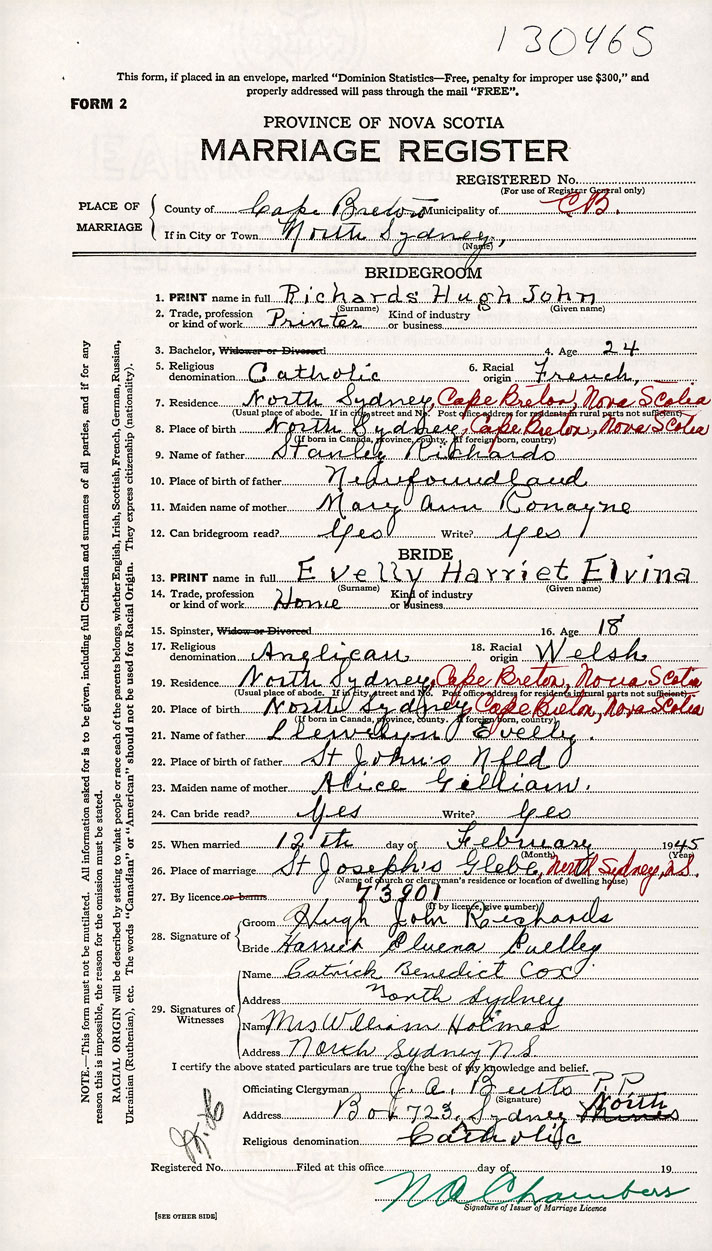 130465
This form, if placed in an envelope, marked "Dominion Statistics—Free, penalty for improper use $300," and
properly addressed will pass through the mail "FREE".
FORM 2
PROVINCE OF NOVA SCOTIA
MARRIAGE REGISTER
REGISTERED No.
(For use of Registrar General only)
PLACE OF MARRIAGE
County of Cape Breton Municipality of C.B.
If in City or Town North Sydney,
(Name)
BRIDEGROOM
1. PRINT name in full Richards Hugh John
(Surname) (Given name)
2. Trade, profession or kind of work Printer Kind of industry or business
3. Bachelor, Widower or Divorced 4. Age 24
5. Religious denomination Catholic 6. Racial origin French,
7. Residence North Sydney, Cape Breton, Nova Scotia
(Usual place of abode. If in city, street and No. Post office address for residents in rural parts not sufficient)
8. Place of birth North Sydney, Cape Breton, Nova Scotia
(If born in Canada, province, county. If foreign born, country)
9. Name of father Stanley Richards
10. Place of birth of father Newfoundland
11. Maiden name of mother Mary Ann Ronayne
12. Can bridegroom read? Yes Write? Yes
BRIDE
13. PRINT name in full Evelly Harriet Elvina
(Surname) (Given name)
14. Trade, profession or kind of work Home Kind of industry or business
15. Spinster, Widow or Divorced 16. Age 18
17. Religious denomination Anglican 18. Racial origin Welsh
19. Residence North Sydney, Cape Breton, Nova Scotia
(Usual place of abode. If in city, street and No. Post office address for residents in rural parts not sufficient)
20. Place of birth North Sydney, Cape Breton, Nova Scotia
(If born in Canada, province, county. If foreign born, country)
21. Name of father Llewelyn Evelly.
22. Place of birth of father St John's Nfld
23. Maiden name of mother Alice Gilliam.
24. Can bride read? Yes Write? Yes
25. When married 12th day of February 1945
(Month) (Year)
26. Place of marriage St Joseph's Glebe, North Sydney, N.S.
(Name of church or clergyman's residence or location of dwelling house)
27. By licence or banns 73901
(If by licence, give number)
28. Signature of
Groom Hugh John Richards
Bride Harriet Elvena Evelley
29. Signatures of Witnesses
Name Patrick Benedict Cox
Address North Sydney
Name Mrs William Holmes
Address North Sydney N.S.
I certify the above stated particulars are true to the best of my knowledge and belief.
Officiating Clergyman J. A. Butts P.P.
(Signature)
Address Box 723, North Sydney Mines
Religious denomination Catholic
Registered No. Filed at this office day of 19
N A Chambers
Signature of Issuer of Marriage Licence
[SEE OTHER SIDE]
NOTE.—This form must not be mutilated. All information asked for is to be given, including full Christian and surnames of all parties, and if for any
reason this is impossible, the reason for the omission must be stated.
RACIAL ORIGIN will be described by stating to what people or race each of the parents belongs, whether English, Irish, Scottish, French, German, Russian,
Ukrainian (Ruthenian), etc. The words "Canadian" or "American" should not be used for Racial Origin. They express citizenship (nationality).